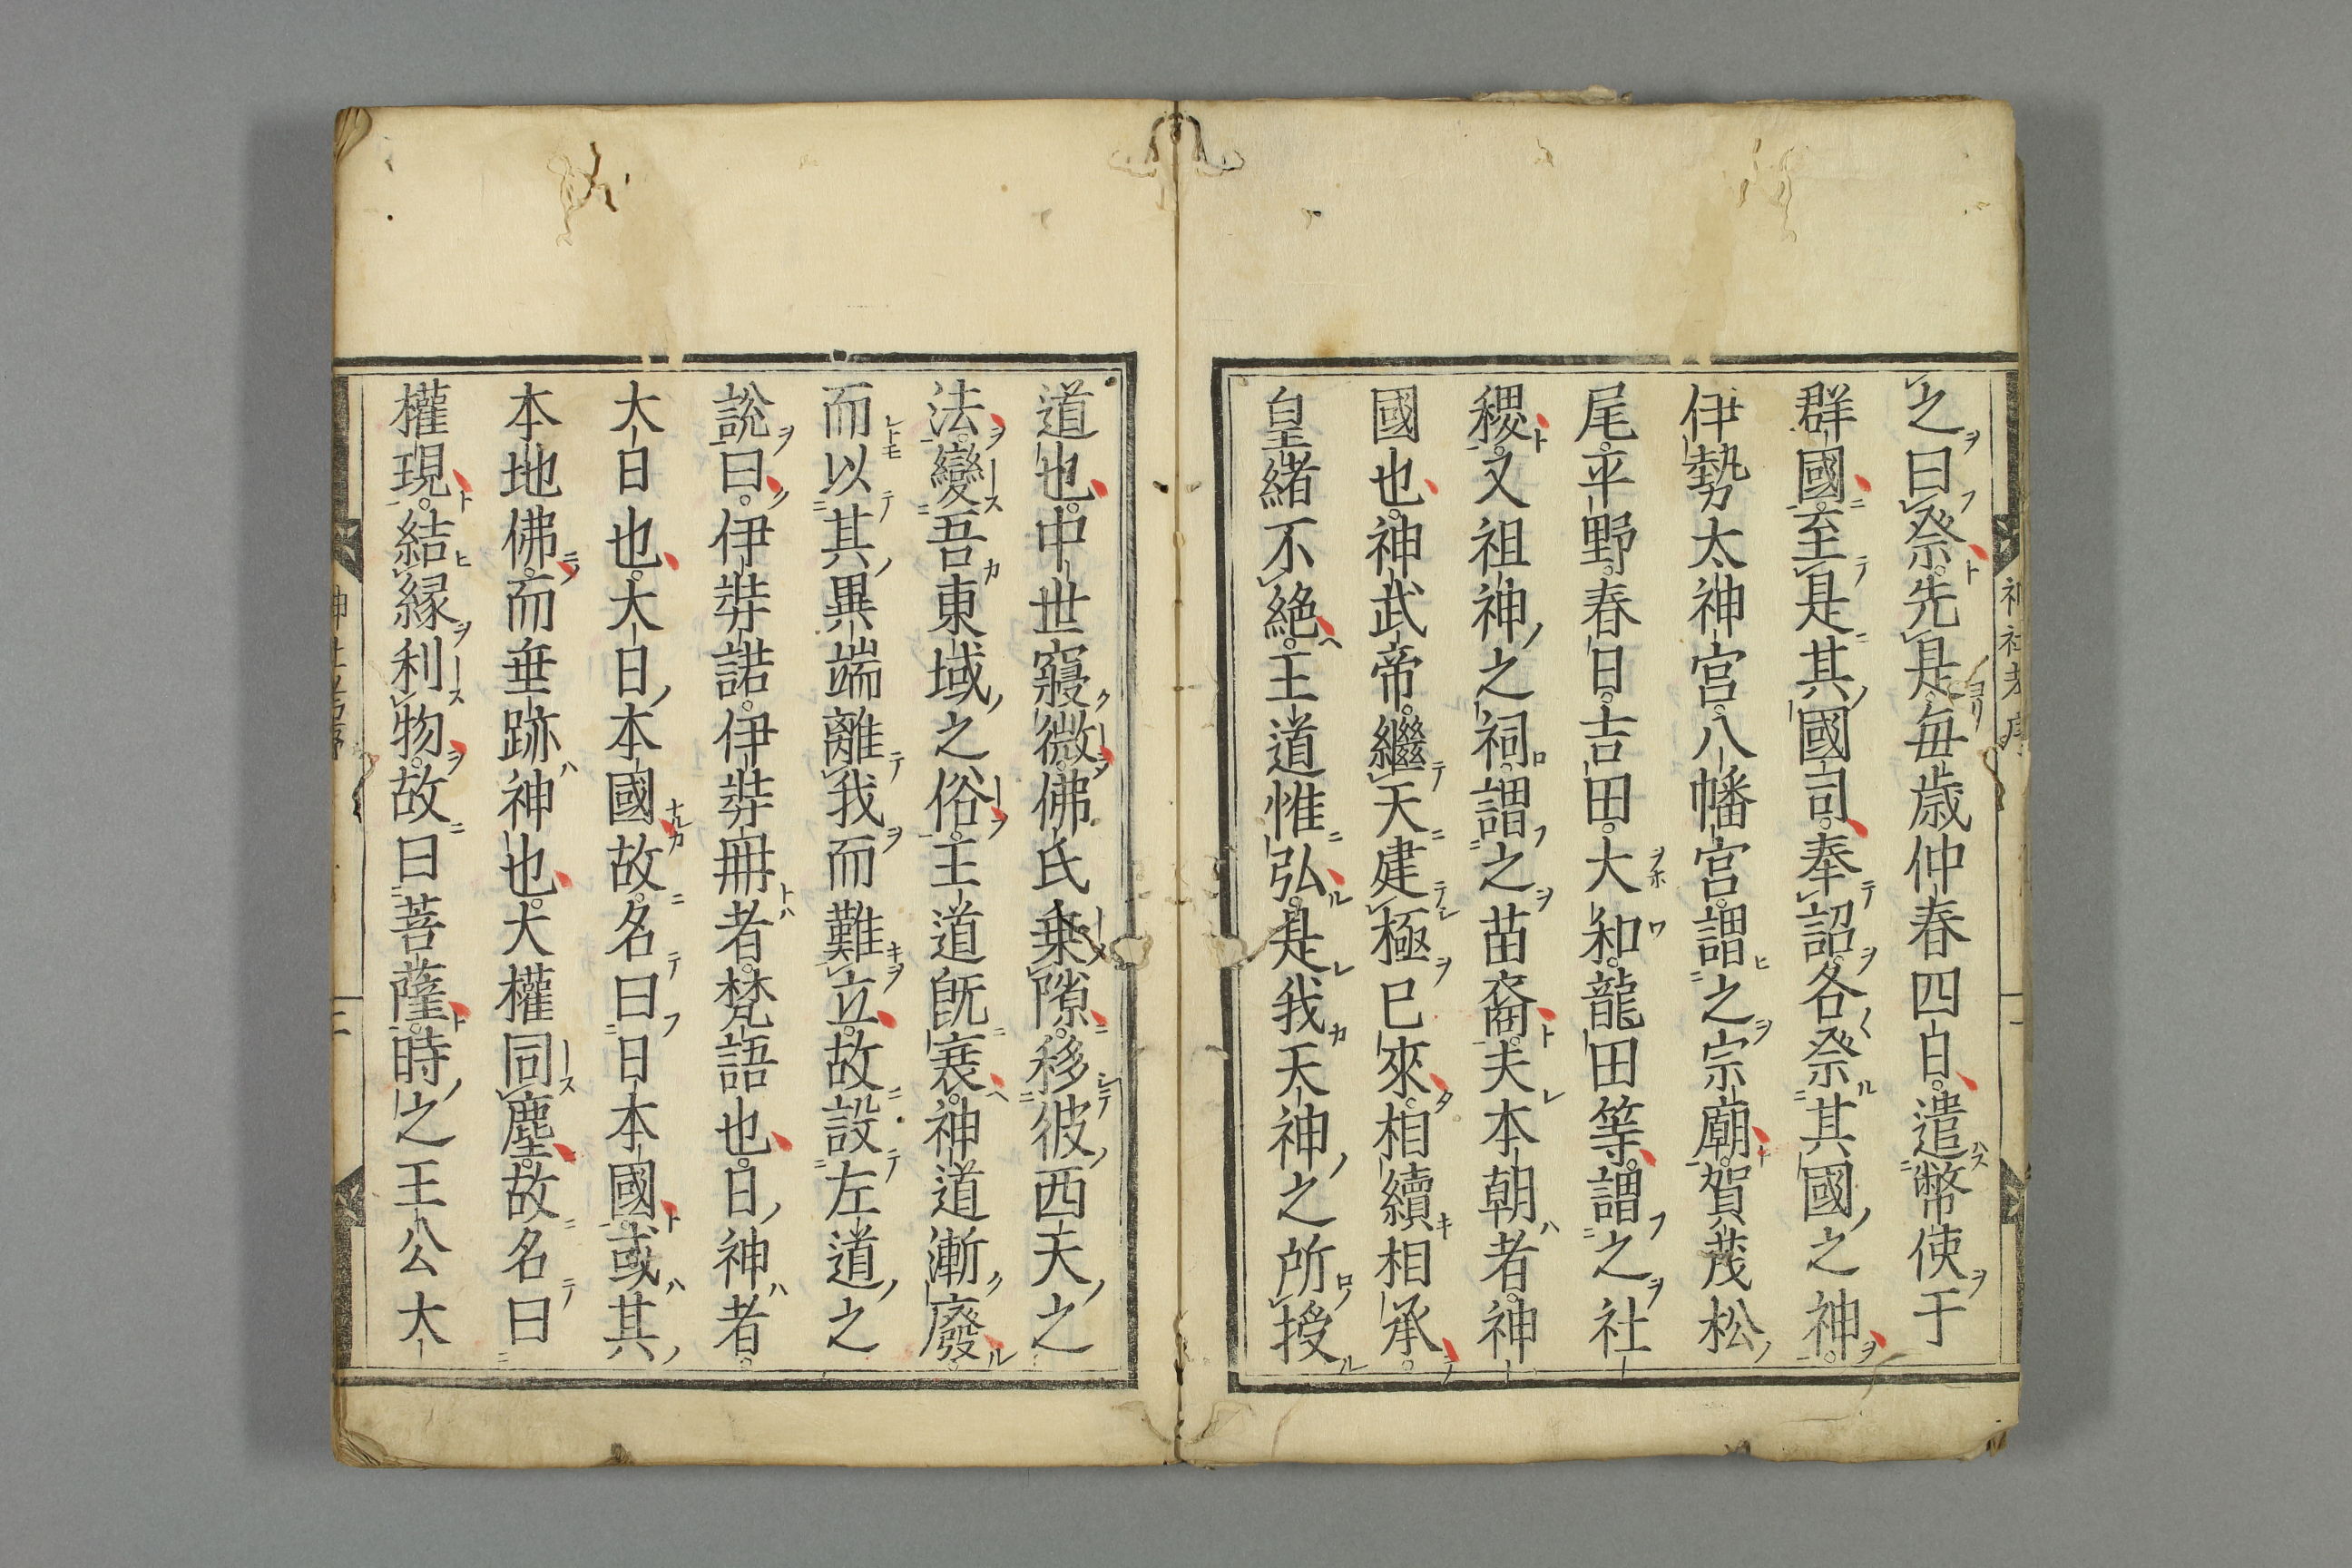 之曰祭先是毎歳仲春四日遣幣使于
群國至是其國司奉詔各祭其國之神
伊勢太神宮八幡宮謂之宗廟賀茂松
尾平野春日吉田大和龍田等謂之社
稷又祖神之祠謂之苗裔夫本朝者神
國也神武帝繼天建極已來相續相承
皇緒不絶王道惟弘是我天神之所授
道也中世寖微佛氏乗隙移彼西天之
法變吾東域之俗王道既衰神道漸廢
而以其異端離我而難立故設左道之
說曰伊弉諾伊弉冊者梵語也日神者
大日也大日本國故名曰日本國或其
本地佛而垂跡神也大權同塵故名曰
權現結縁利物故曰菩薩時之王公大